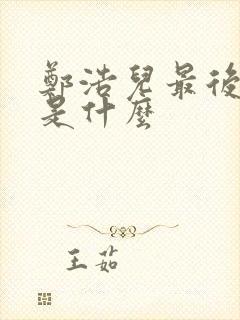 鄭浩兒最後
是什麼
王茹